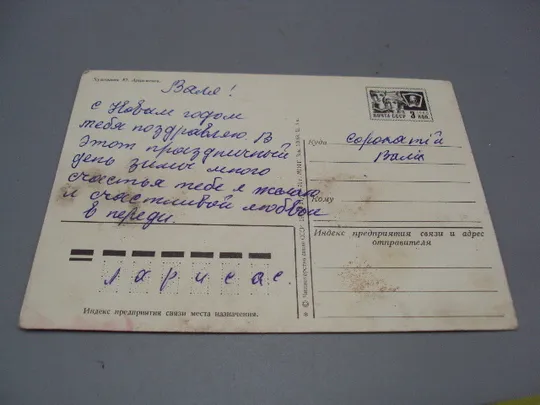 Художник
Валя!
с Новым годом
тебя поздравляю. В
этот праздничный
день зимы много
счастья тебе я желаю
и счастливой любви
в переди.
ПОЧТА СССР 3 КОП.
Куда
Сорокатій
Валі
Кому
Индекс предприятия связи и адрес
отправителя
Лариса с.
Индекс предприятия связи места назначения.
© Министерство связи СССР